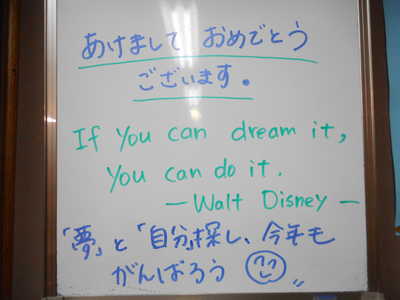 あけまして おめでとう
ございます。
If You can dream it,
You can do it.
— Walt Disney —
「夢」と「自分」探し、今年も
がんばろう